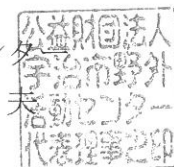 公益財団法人
宇治市野外
活動センター
代表理事之印
ター
夫